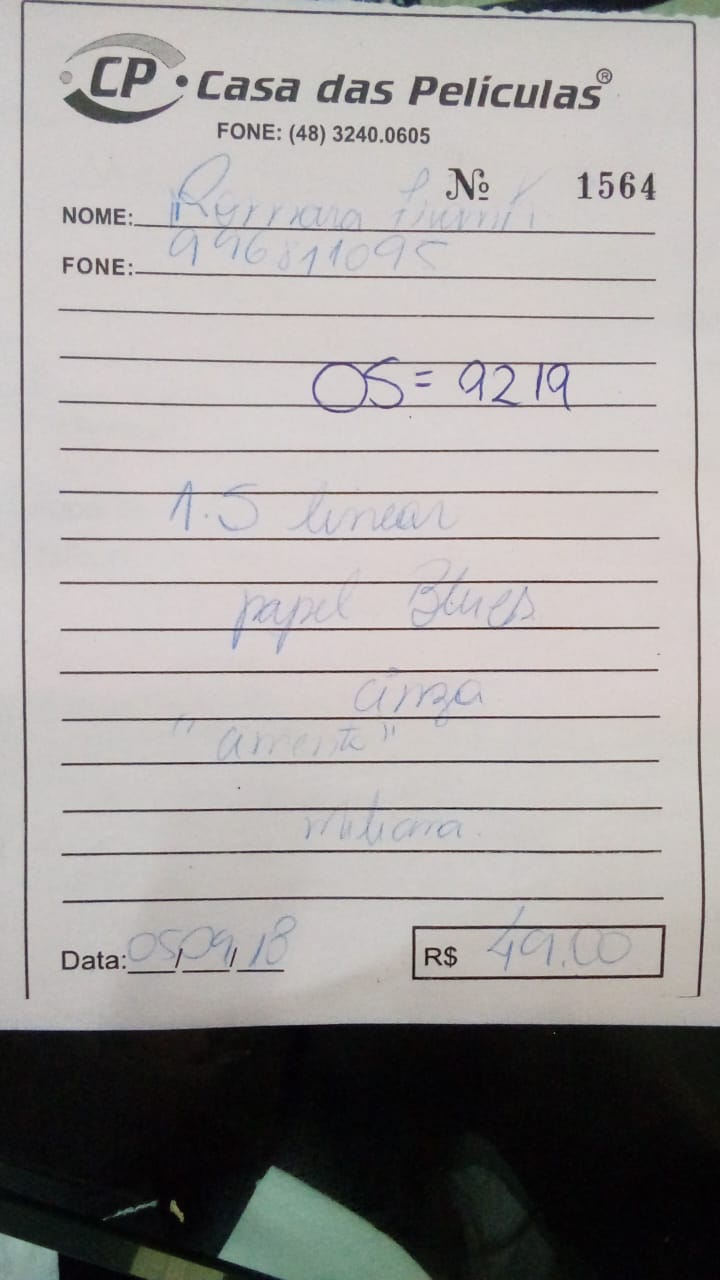 CP • Casa das Películas®
FONE: (48) 3240.0605
Nº 1564
NOME:
FONE: 996811095
OS = 9219
1.5 linear
papel Blues
cinza
Data: 05/09/18
R$ 49.00